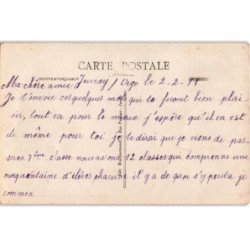 CARTE POSTALE
CORRESPONDANCE
Ma chère amie Juvisy s/ Orge le 2-2-
Je t'envoie ces quelques mots qui te feront bien plai-
sir, tout va pour le mieux j'espère qu'il en est
de même pour toi je te dirai que je viens de pas-
ser en 7ème classe nous avons 12 classes qui comprenne une
cinquantaine d'élèves chacune il y a de quoi s'y perdre je
commen